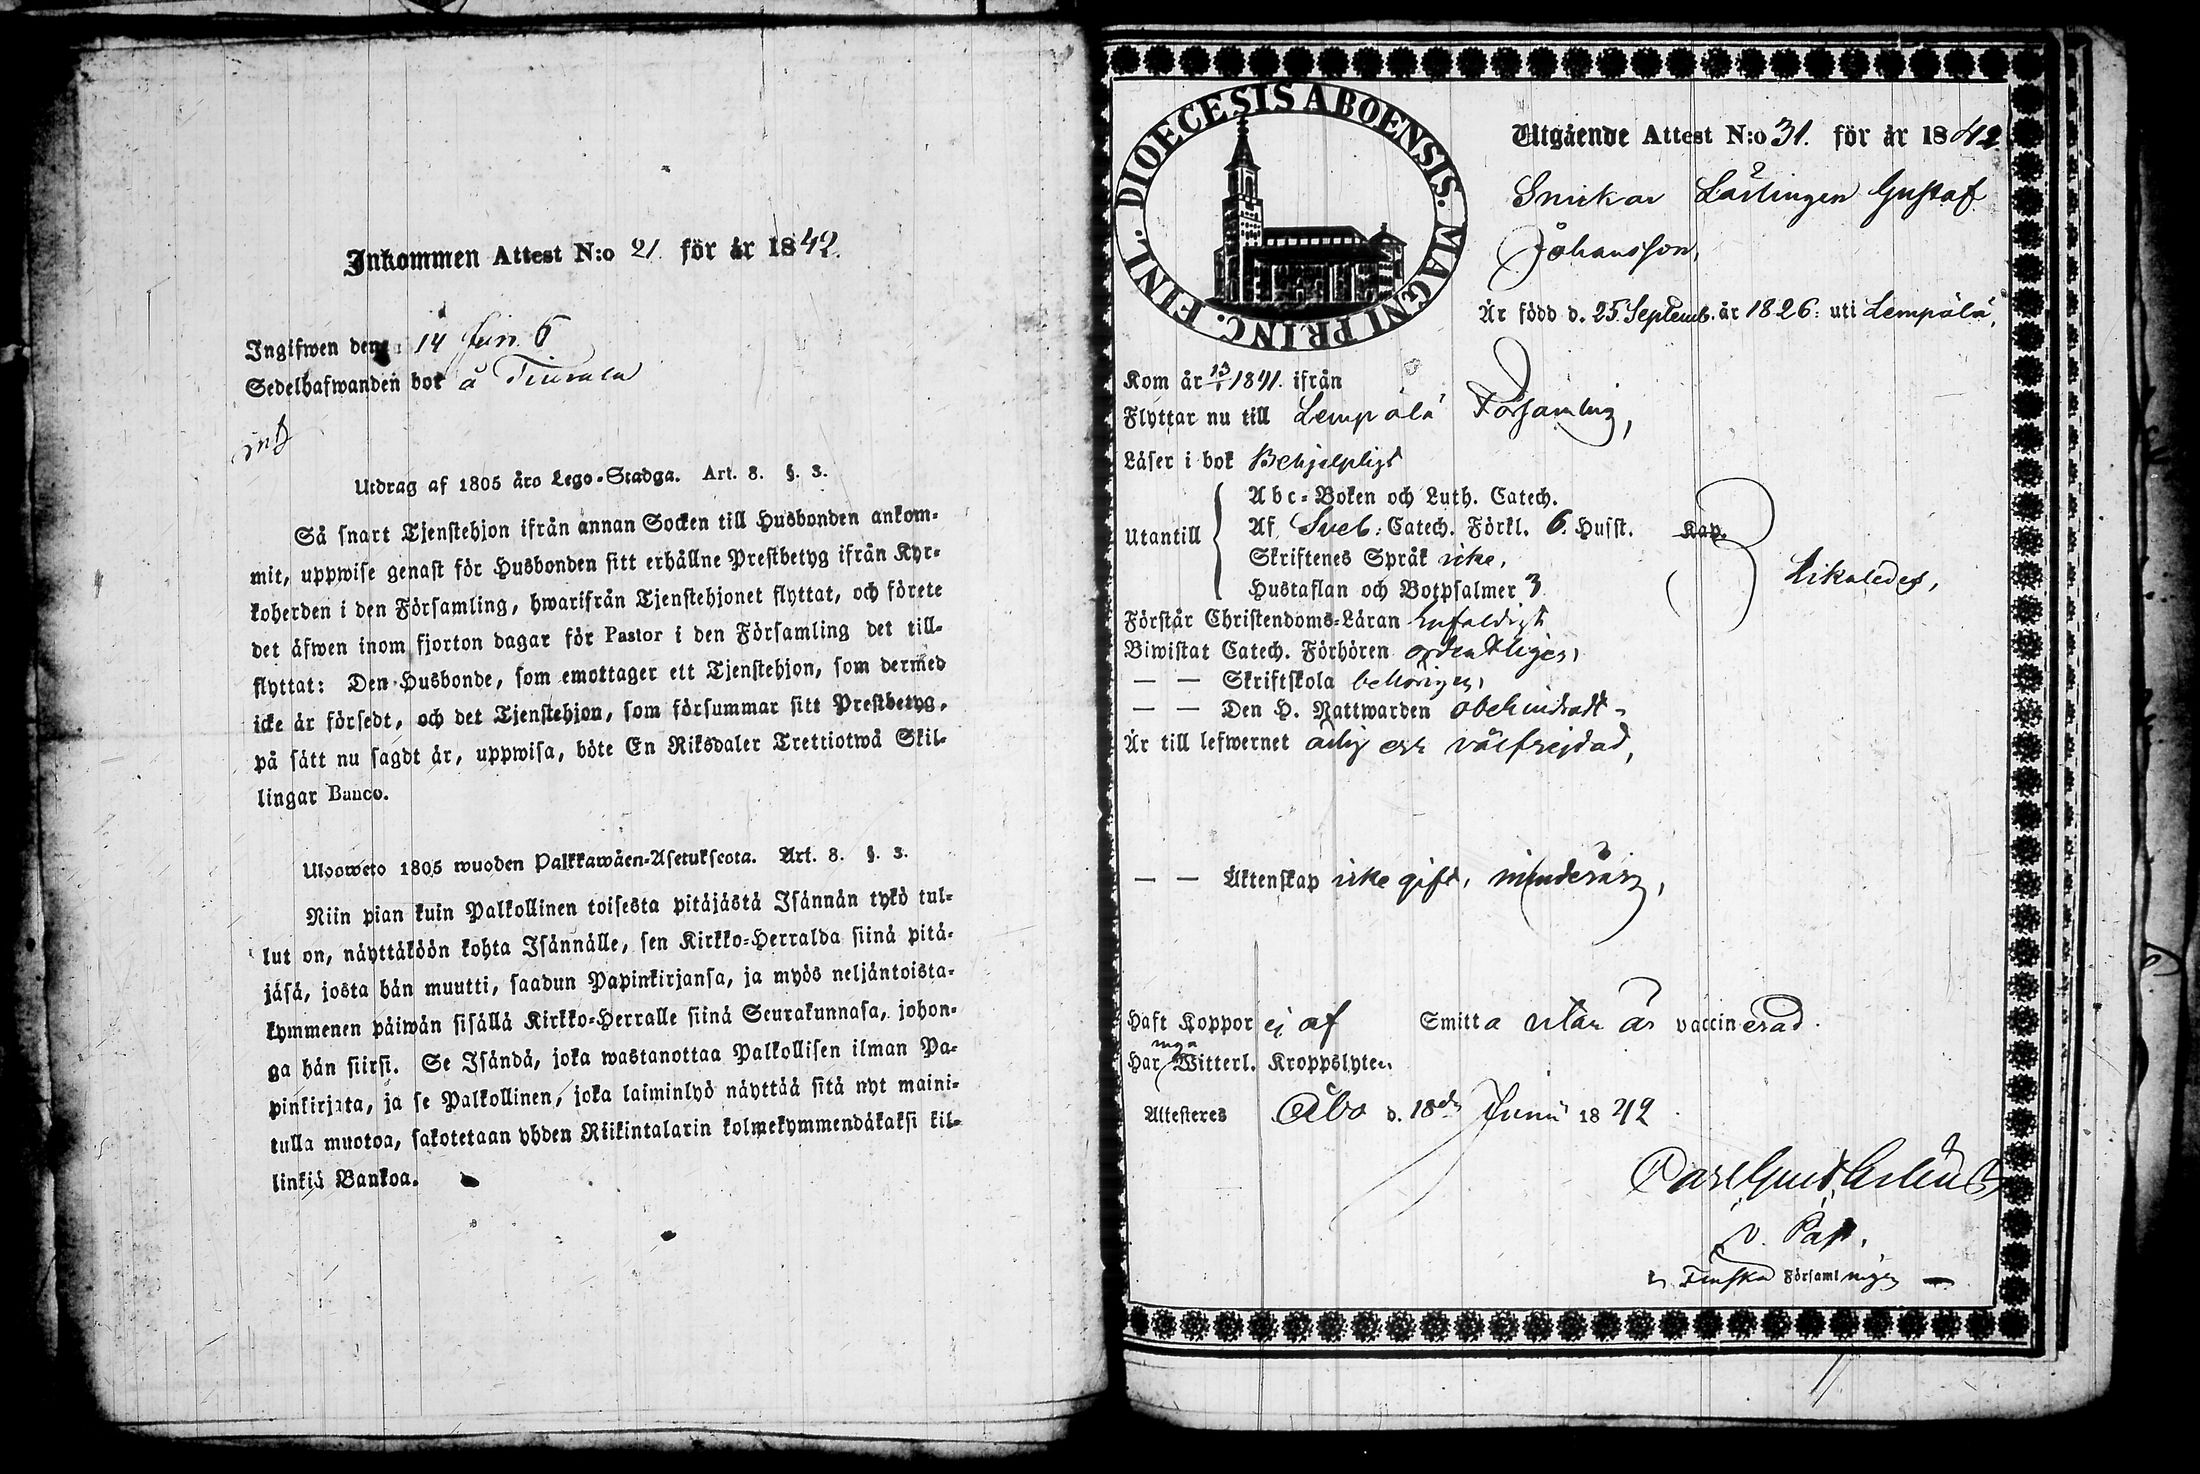 Inkommen Attest N:o 21. för år 1842.
Ingifwen den 14
Sedelhafwanden bor å
Utdrag af 1805 års Lego-Stadga. Art. 8. §. 3.
Så snart Tjenstehjon ifrån annan Socken till Husbonden ankom-
mit, uppwise genast för Husbonden sitt erhållne Prestbetyg ifrån Kyr-
koherden i den Församling, hwarifrån Tjenstehjonet flyttat, och förete
det äfwen inom fjorton dagar för Pastor i den Församling det till-
flyttat: Den Husbonde, som emottager ett Tjenstehjon, som dermed
icke är försedt, och det Tjenstehjon, som försummar sitt Prestbetyg,
på sätt nu sagdt är, uppwisa, böte En Riksdaler Trettiotwå Skil-
lingar Banco.
Uloswето 1805 wuoden Palkkawäen-Asetuksesta. Art. 8. §. 3.
Niin pian kuin Palkollinen toisesta pitäjästä Isännän tykö tul-
lut on, näyttäköön kohta Isännälle, sen Kirkko-Herralda siinä pitä-
jäsä, josta hän muutti, saadun Papinkirjansa, ja myös neljäntoista-
kymmenen päiwän sisällä Kirkko-Herralle siinä Seurakunnasa, johon-
ga hän siirsi. Se Isändä, joka wastanottaa Palkollisen ilman Pa-
pinkirjata, ja se Palkollinen, joka laiminlyö näyttää sitä nyt maini-
tulla muotoa, sakotetaan yhden Riikintalarin kolmekymmendäkaksi kil-
linkiä Bankoa.
DIOECESIS ABOENSIS. MAGNI PRINC. FINL.
Utgående Attest N:o 31. för år 1842.
Snickar Lärlingen Gustaf
Johansson,
Är född d. 25 Septemb. år 1826: uti Lempälä,
Kom år 13/1 1841. ifrån
Flyttar nu till Lempälä Församling,
Läser i bok Behjelpligt
Utantill
Abc-Boken och Luth. Catech.
Af Sveb: Catech. Förkl. 6. Husst. Kap.
Skriftenes Språk icke,
Hustaflan och Botpsalmer 3
Likaledes,
Förstår Christendoms-Läran Enfaldigt
Biwistat Catech. Förhören ordentligen,
— — Skriftskola behörigen,
— — Den H. Nattwarden obehindradt
Är till lefwernet ärlig och välfrejdad,
— — Äktenskap icke gift, minderårig,
Haft Koppor ej af Smitta utan är vaccinerad.
Har inga Witterl. Kroppslyten
Attesteres Åbo d. 18de Junii 1842
v. Past.
i Finska Församlingen —